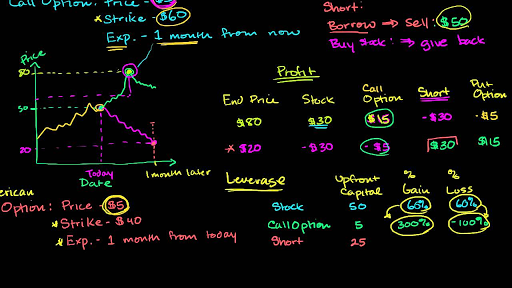 Call Option: Price - $5
* Strike - $60
Exp. - 1 month from now
Short:
Borrow ⇒ Sell: $50
Buy stock: ⇒ give back
Price
80
50
20
Today
Date
1 month later
Profit
End Price Stock Call Option Short Put Option
$80 $30 $15 -$30 -$5
* $20 -$30 -$5 $30 $15
erican
Option: Price - $5
* Strike - $40
* Exp. - 1 month from today
Leverage Upfront Capital % Gain % Loss
Stock 50 60% 60%
Call Option 5 300% -100%
Short 25